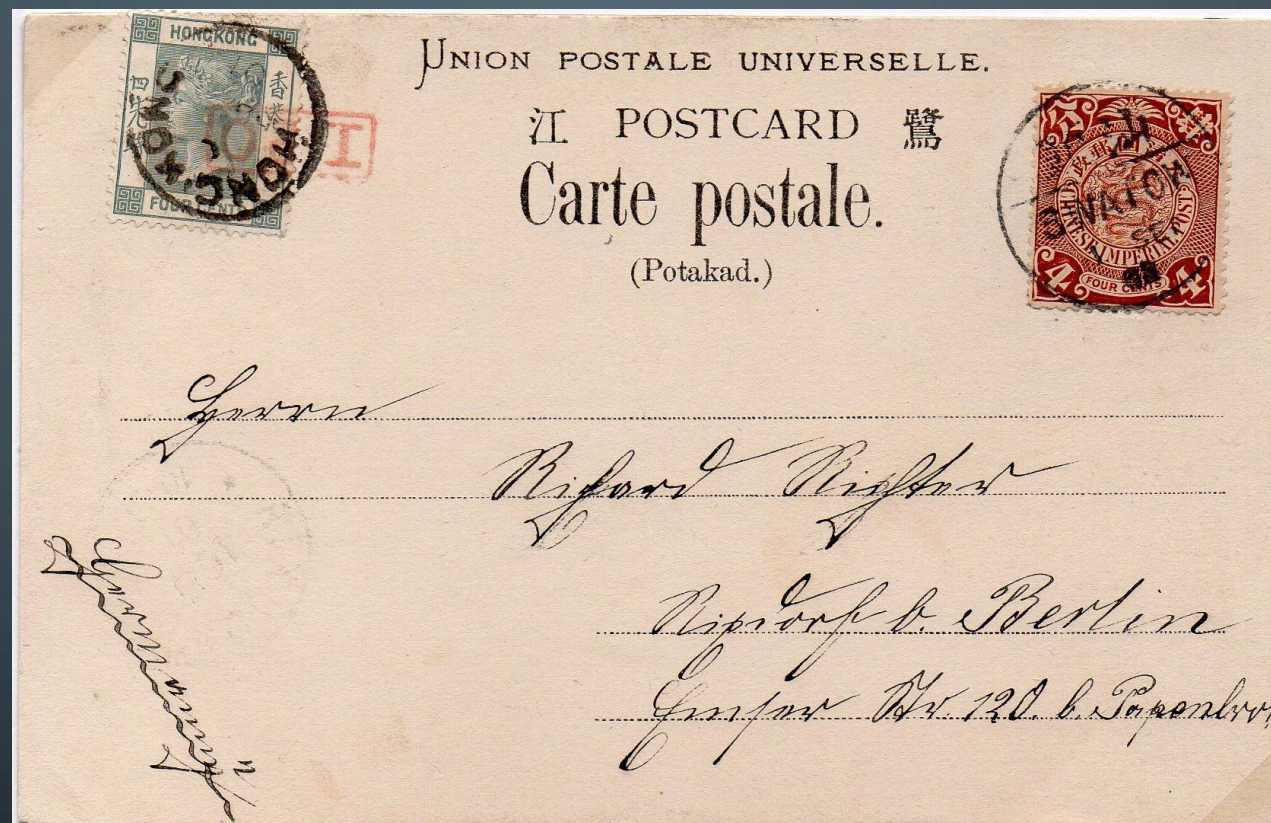 UNION POSTALE UNIVERSELLE.
江 POSTCARD 鷺
Carte postale.
(Potakad.)
HONGKONG
香港
四先
FOUR CENTS
HONG KONG
江
CHINESE IMPERIAL POST
4 FOUR CENTS 4
Herrn
Richard Richter
Rixdorf b. Berlin
Emser Str. 120. b.
Germany